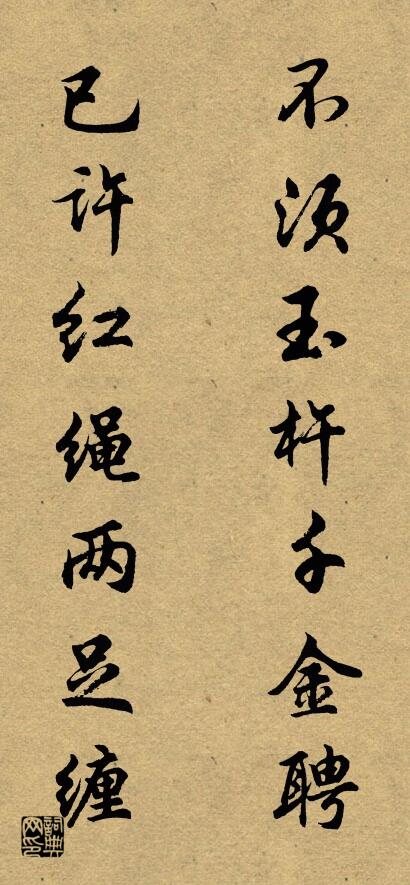 不须玉杵千金聘
已许红绳两足缠
词典网印